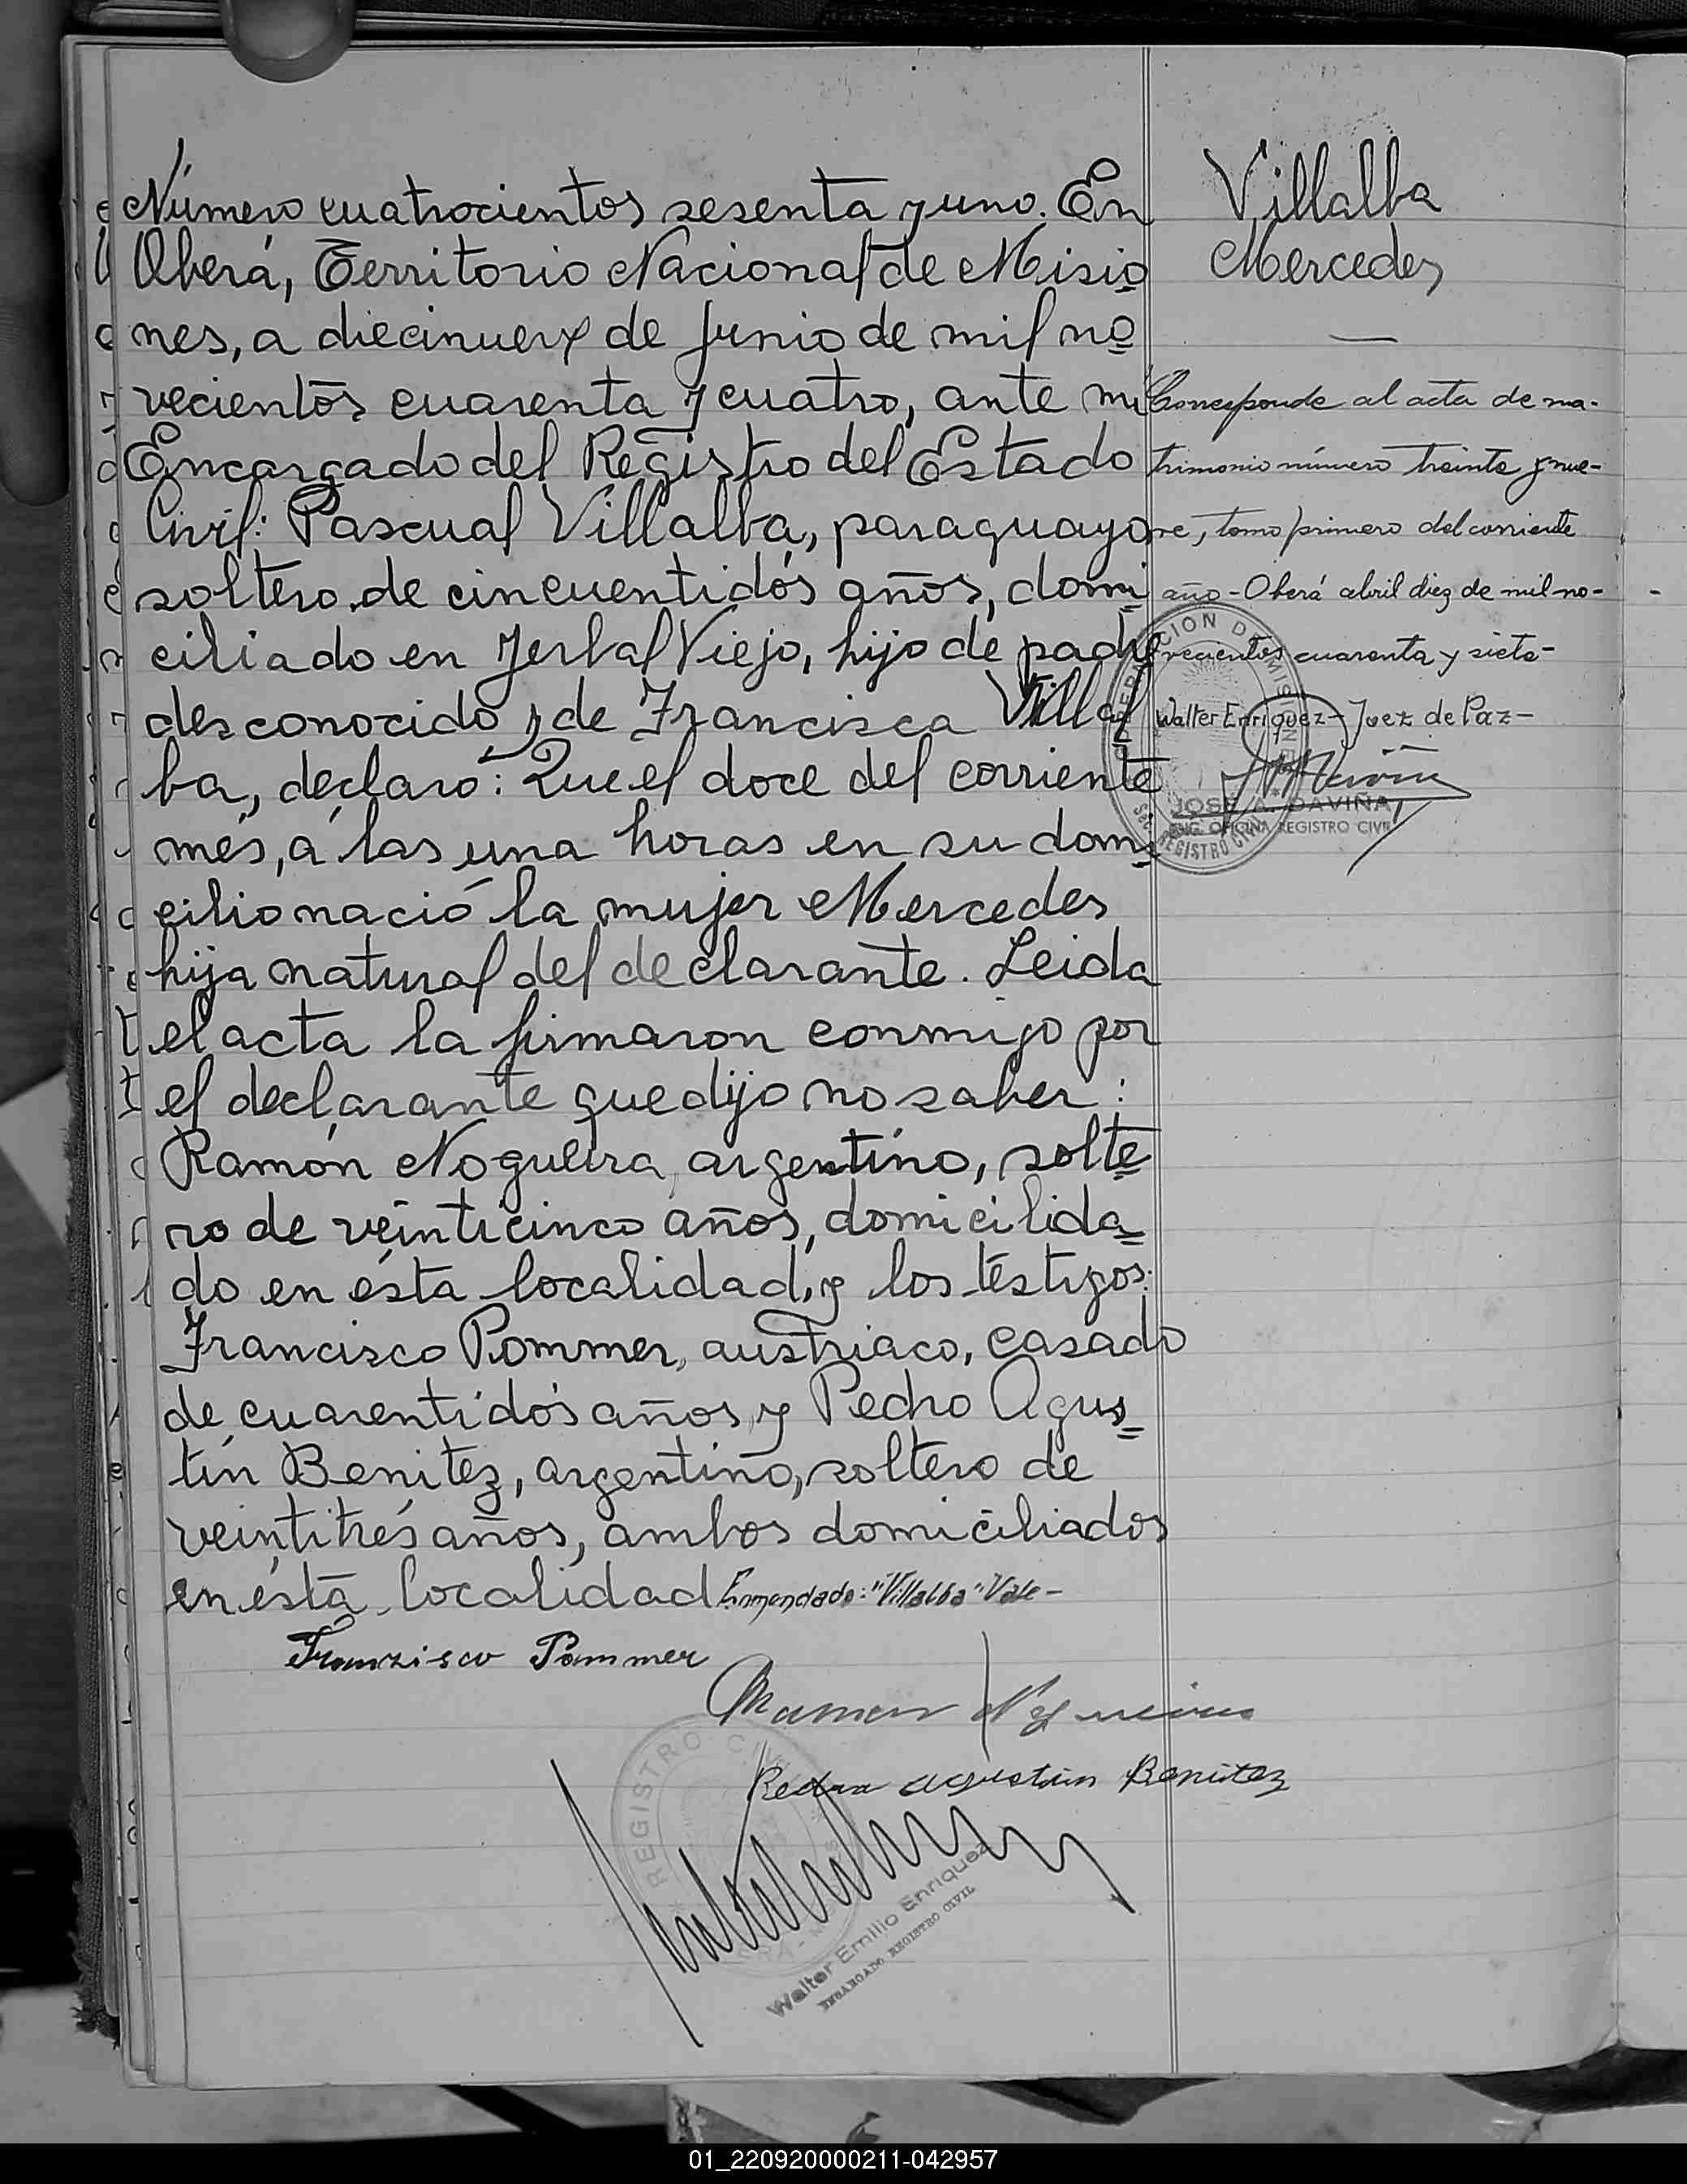 Número cuatrocientos sesenta y uno. En
Oberá, Territorio Nacional de Misio
nes, a diecinueve de Junio de mil no
vecientos cuarenta y cuatro, ante mi
Encargado del Registro del Estado
Civil: Pascual Villalba, paraguayo
soltero de cincuentidós años, domi
ciliado en Yerbal Viejo, hijo de padre
desconocido y de Francisca Villal
ba, declaró: Que el doce del corriente
més, a las una horas en su domi
cilio nació la mujer Mercedes
hija natural del declarante. Leida
el acta la firmaron conmigo por
el declarante que dijo no saber:
Ramón Nogueira, argentino, solte
ro de veinticinco años, domicilida
do en ésta localidad, y los testigos:
Francisco Pommer, austriaco, casado
de cuarentidós años y Pedro Agus
tín Benitez, argentino, soltero de
veintitrés años, ambos domiciliados
en ésta localidad Enmendado: "Villalba" Vale-
Franzisco Pommer
Ramon Nogueira
Pedro Agustin Benitez
REGISTRO CIVIL
Walter Emilio Enriquez
ENCARGADO REGISTRO CIVIL
Villalba
Mercedes
Corresponde al acta de ma-
trimonio número treinta y nue-
ve, tomo primero del corriente
año - Oberá abril diez de mil no-
vecientos cuarenta y siete-
Walter Enriquez - Juez de Paz-
JOSÉ A. DAVIÑA
ENC. OFICINA REGISTRO CIVIL
01_220920000211-042957